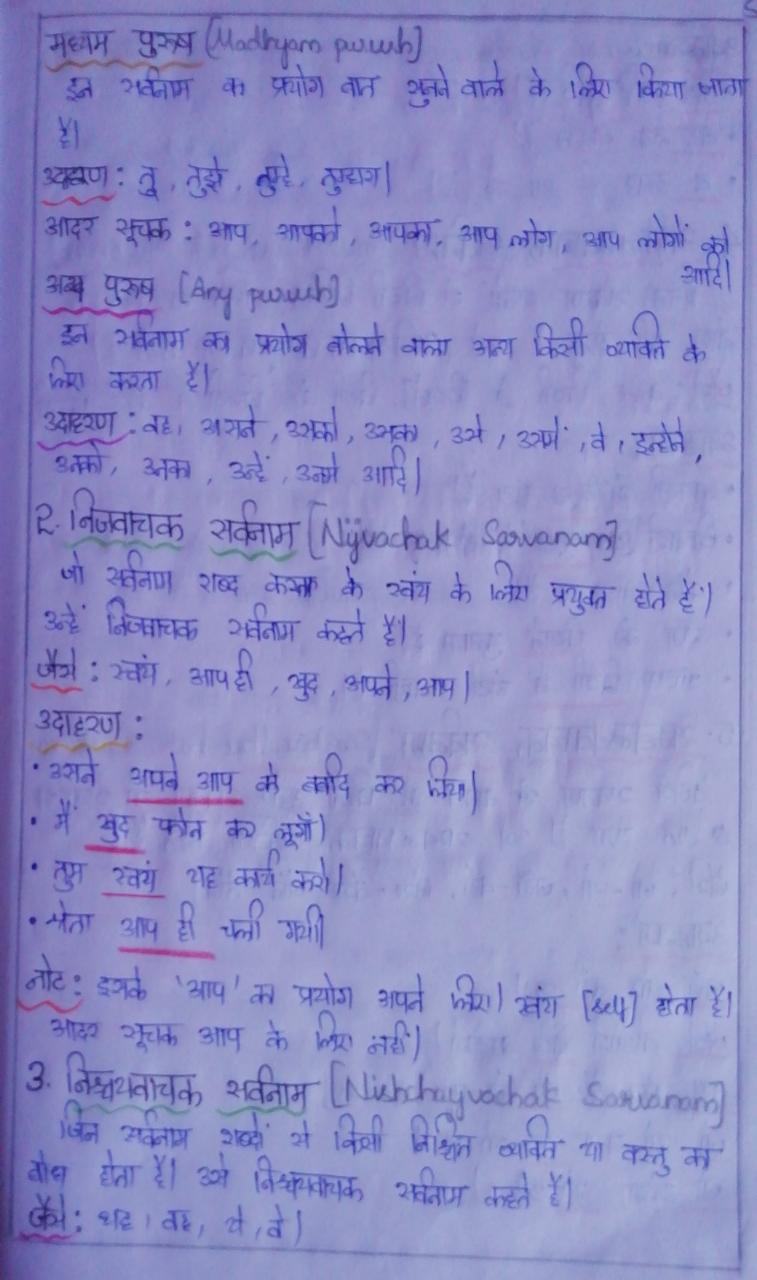 मध्यम पुरुष [Madhyam purush]
इन सर्वनाम का प्रयोग बात सुनने वाले के लिए किया जाता
है।
उदाहरण : तू, तुझे, तुम्हे, तुम्हारा।
आदर सूचक : आप, आपको, आपका, आप लोग, आप लोगों को
आदि।
अन्य पुरुष [Any purush]
इन सर्वनाम का प्रयोग बोलने वाला अन्य किसी व्यक्ति के
लिए करता है।
उदाहरण : वह, उसने, उसको, उसका, उसे, उसमें, वे, इन्होने,
उनको, उनका, उन्हें, उनमे आदि।
2. निजवाचक सर्वनाम [Nijvachak Sarvanam]
जो सर्वनाम शब्द करता के स्वंय के लिए प्रयुक्त होते है।
उन्हें निजवाचक सर्वनाम कहते है।
जैसे : स्वंय, आप ही, खुद, अपने, आप।
उदाहरण :
• उसने अपने आप को बर्बाद कर लिया।
• मैं खुद फोन कर लूगाँ।
• तुम स्वंय यह कार्य करो।
• श्वेता आप ही चली गयी।
नोट : इसके 'आप' का प्रयोग अपने लिए। स्वंय [self] होता है।
आदर सूचक आप के लिए नही।
3. निश्चयवाचक सर्वनाम [Nishchayvachak Sarvanam]
जिन सर्वनाम शब्दों से किसी निश्चित व्यक्ति या वस्तु का
बोध होता है। उसे निश्चयवाचक सर्वनाम कहते हैं।
जैसे : यह, वह, ये, वे।